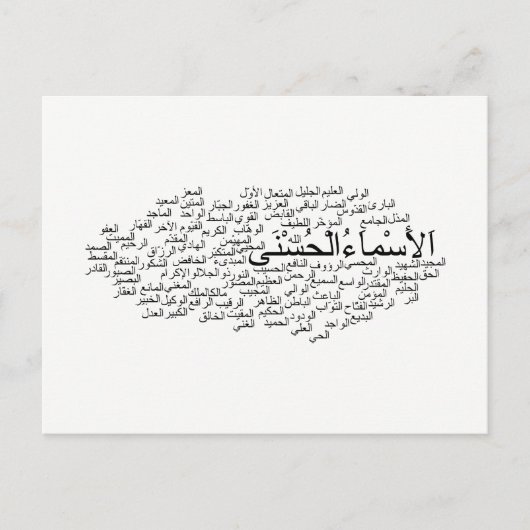 المعز الأول المتعال الجليل العليم الولي
المعيد المتين الجبّار الغفور العزيز الباقي الضار القدّوس البارئ
الماجد الواحد الباسط القوي القابض المؤخّر الجامع المذل
العفو القهّار الآخر القيوم الكريم الوهاب اللطيف
المميت المقدّم المهيمن الله
الصمد الرحيم الرزاق الهادي المتكبّر المحيي
اَلأَسْماءُ الْحُسْنَى
المقسط المنتقم الشكور الخافض المبدىء الحسيب النافع الرؤوف المحصي الشهيد المجيد
القادر الصبور ذو الجلال والإكرام النور الرحمن الوارث الحق
البصير المانع المغني المصوّر العظيم السميع الواسع المقتدر الحفيظ
الغفار مالك الملك المجيب الوالي الباعث المؤمن الحليم
الخبير الوكيل الرافع الرقيب الظاهر الباطن التواب الفتّاح الرشيد البر
العدل الكبير الخالق المقيت الحكيم الودود البديع
الغني الحميد العلي الواجد
الحي